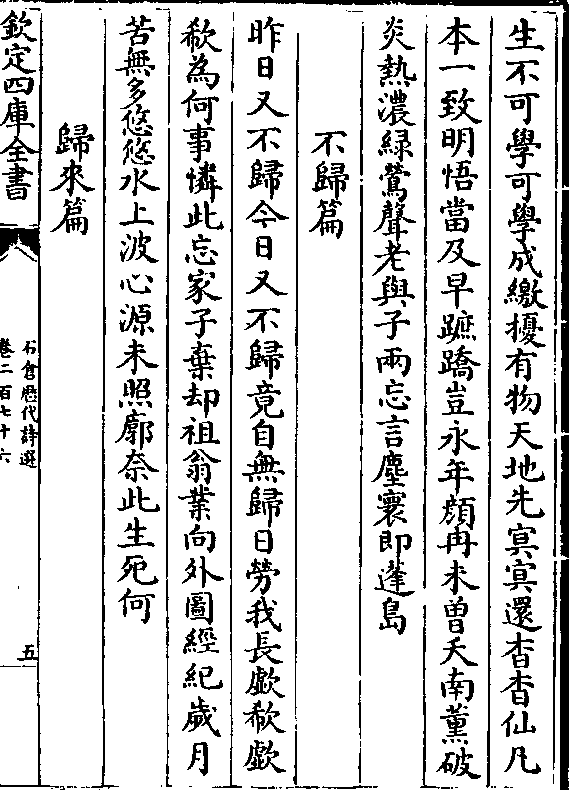 生不可學可學成繳擾有物天地先㝠㝠還杳杳仙凡
本一致明悟當及早蹠蹻豈永年顔冉未曽夭南薫破
炎熱濃緑鶯聲老與子兩忘言塵寰即蓬島
不歸篇
昨日又不歸今日又不歸竟自無歸日勞我長歔欷歔
欷為何事憐此忘家子棄却祖翁業向外圖經紀歲月
苦無多悠悠水上波心源未照廓奈此生死何
歸來篇
欽定四庫全書
石倉歴代詩選
卷二百七十六
五